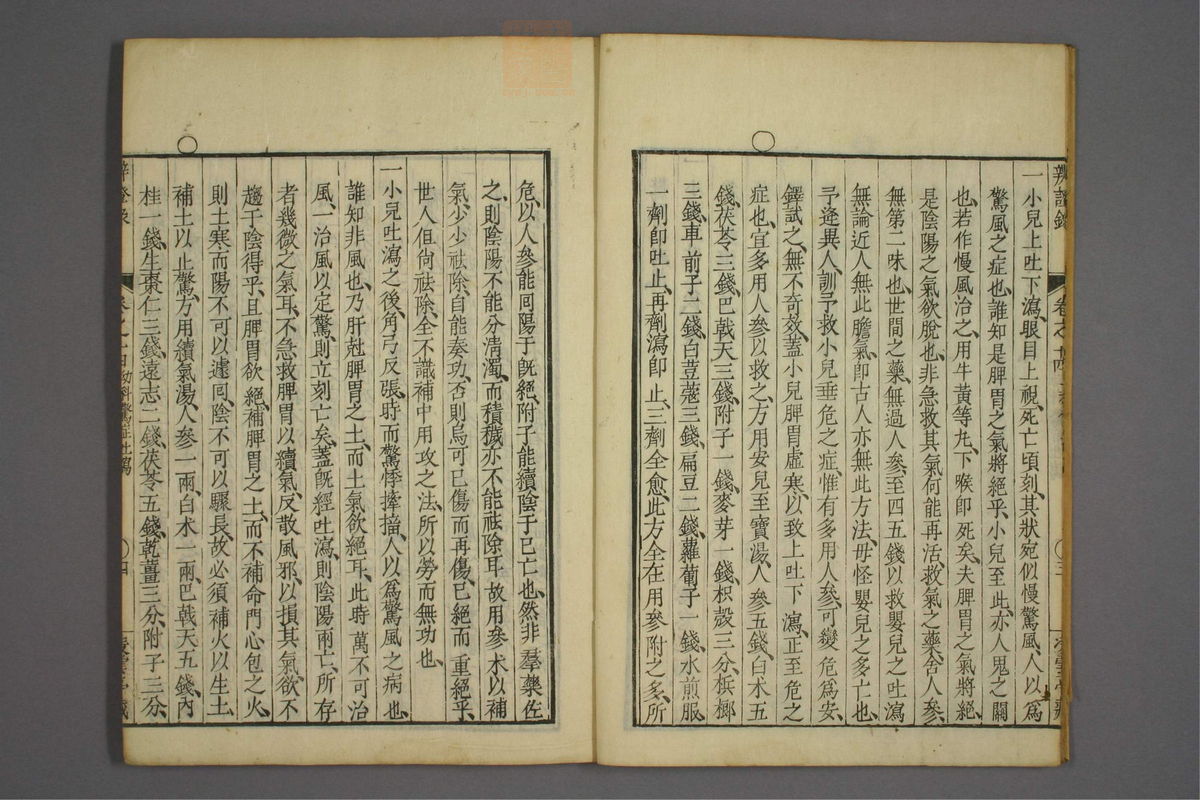 辨證錄 卷之十四
一小兒上吐下瀉、眼目上視、死亡頃刻、其狀宛似慢驚風、人以爲
驚風之症也、誰知是脾胃之氣將絕乎、小兒至此、亦人鬼之關
也、若作慢風治之、用牛黃等丸、下喉卽死矣、夫脾胃之氣將絕、
是陰陽之氣欲脫也、非急救其氣、何能再活、救氣之藥、舍人參、
無第二味也、世間之藥、無過人參、至四五錢、以救嬰兒之吐瀉
無論近人無此膽氣、卽古人亦無此方法、毋怪嬰兒之多亡也、
予逢異人、訓予救小兒垂危之症、惟有多用人參、可變危爲安、
鐸試之、無不奇效、蓋小兒脾胃虛寒、以致上吐下瀉、正至危之
症也、宜多用人參以救之、方用安兒至寶湯、人參五錢、白术五
錢、茯苓三錢、巴戟天三錢、附子一錢、麥芽一錢、枳殼三分、梹榔
三錢、車前子二錢、白荳蔻三錢、扁豆二錢、蘿蔔子一錢、水煎服、
一劑卽吐止、再劑瀉卽止、三劑全愈、此方全在用參附之多、所
危、以人參能囘陽于旣絕、附子能續陰于已亡也、然非羣藥佐
之、則陰陽不能分淸濁、而積穢亦不能祛除耳、故用參术以補
氣、少少祛除、自能奏功、否則烏可已傷而再傷、已絕而重絕乎、
世人但尙祛除、全不識補中用攻之法、所以勞而無功也、
一小兒吐瀉之後、角弓反張、時而驚悸搐、人以爲驚風之病也、
誰知非風也、乃肝尅脾胃之土、而土氣欲絕耳、此時萬不可治
風、一治風以定驚、則立刻亡矣、蓋旣經吐瀉、則陰陽兩亡、所存
者幾微之氣耳、不急救脾胃以續氣、反散風邪、以損其氣、欲不
趨于陰得乎、且脾胃欲絕、補脾胃之土、而不補命門心包之火、
則土寒而陽不可以遽囘、陰不可以驟長、故必須補火以生土
補土以止驚、方用續氣湯、人參一兩、白术一兩、巴戟天五錢、肉
桂一錢、生棗仁三錢、遠志二錢、茯苓五錢、乾薑三分、附子三分、
幼科驚疳吐瀉